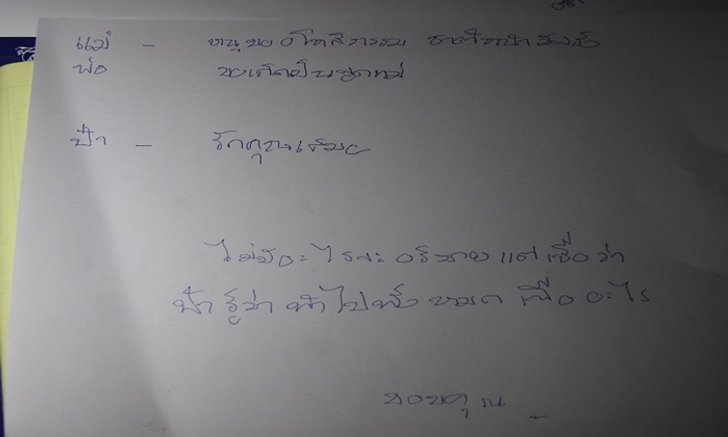 แม่ - หนูขออโหสิกรรม ชาติหน้า
พ่อ ขอเกิดเป็นลูกแม่
ป้า - รักคุณเสมอ
ไม่มีอะไรจะอธิบาย แต่เชื่อว่า
ป้า รู้ว่า ทำไปทั้งหมด เพื่ออะไร
ขอบคุณ